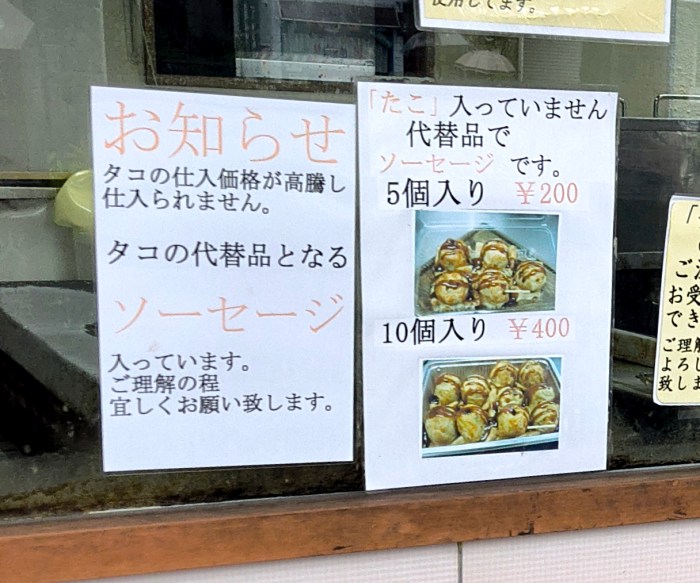 使用してます。
お知らせ
タコの仕入価格が高騰し
仕入られません。
タコの代替品となる
ソーセージ
入っています。
ご理解の程
宜しくお願い致します。
「たこ」入っていません
代替品で
ソーセージ です。
5個入り ￥200
10個入り ￥400
お受
でき
ご理解
よろし
致しま